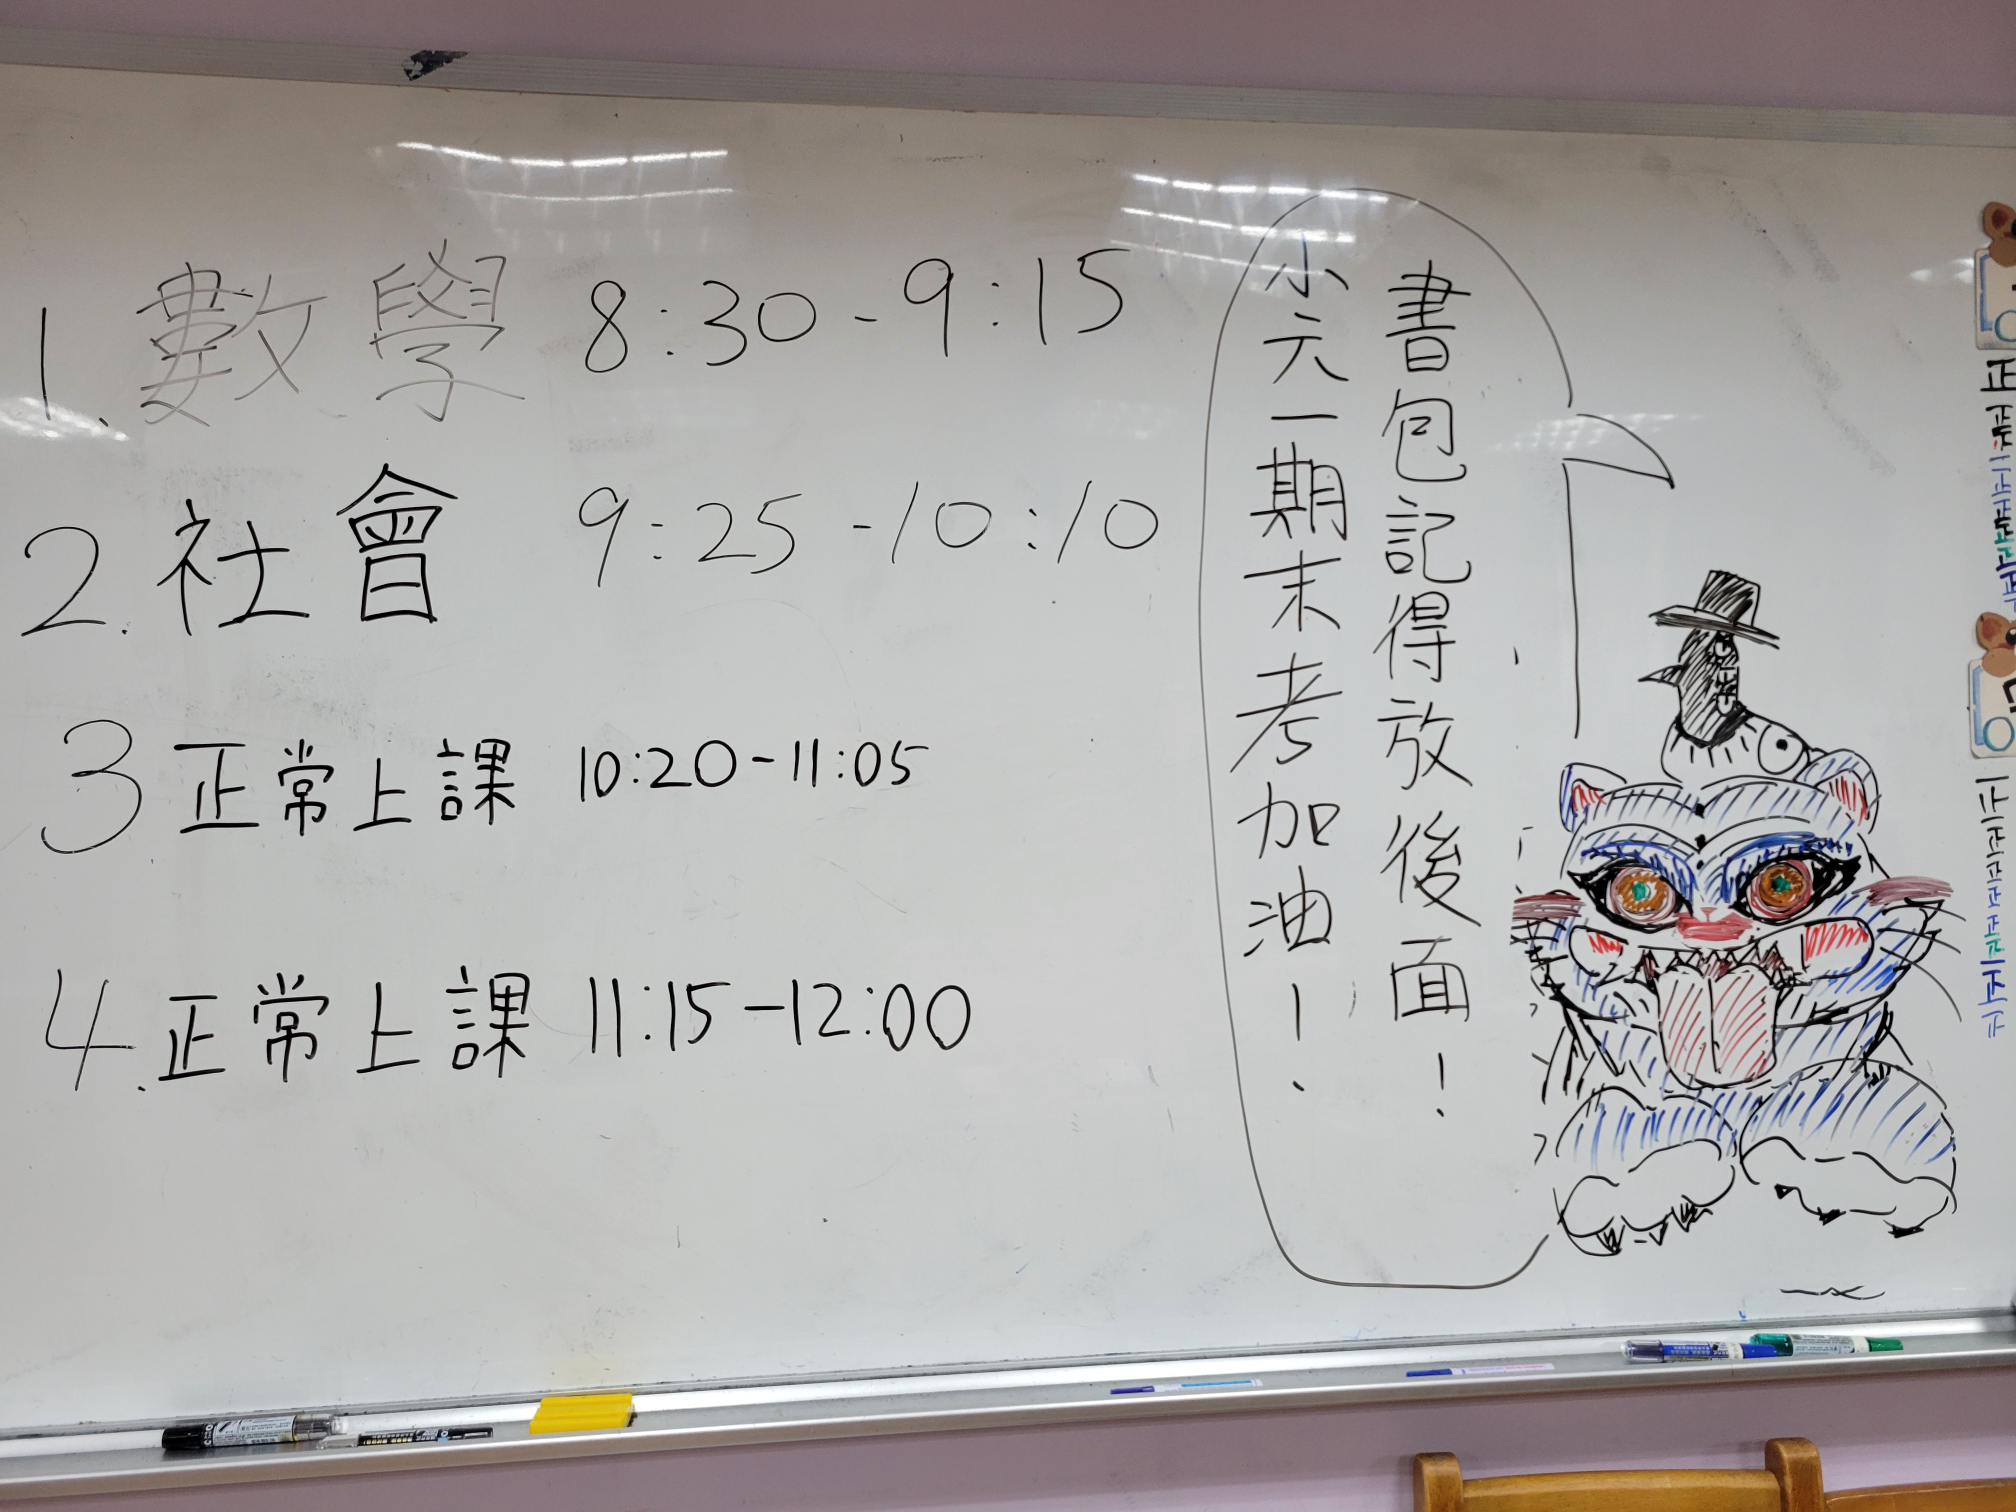 1. 數學 8:30-9:15
2. 社會 9:25-10:10
3 正常上課 10:20-11:05
4. 正常上課 11:15-12:00
書包記得放後面!
小元一期末考加油!
正
正